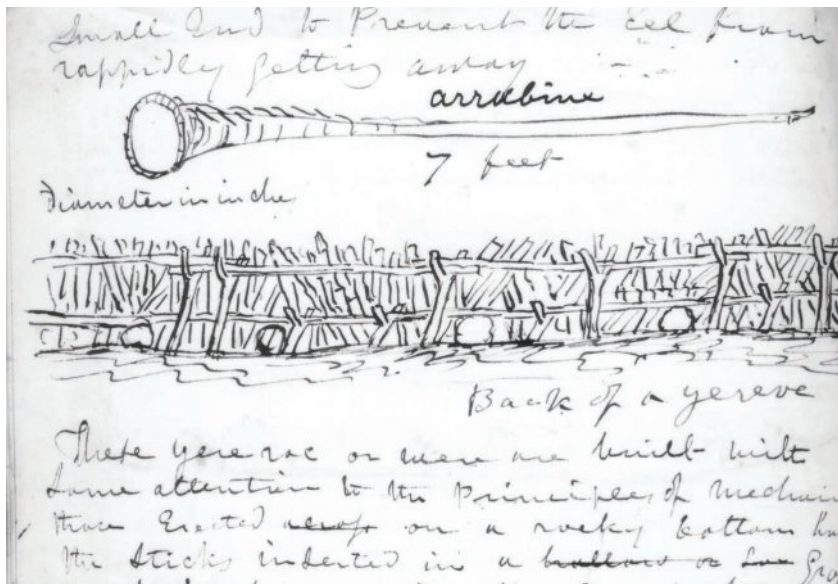 Small End to Prevent the eel from
rappidly getting away
arrabine
7 feet
Diameter in inches
Back of a yereve
These yereroc or were are built with
some attention to the Principles of mechani
those Erected across on a rocky bottom ha
the sticks inserted in a hollow or Gro